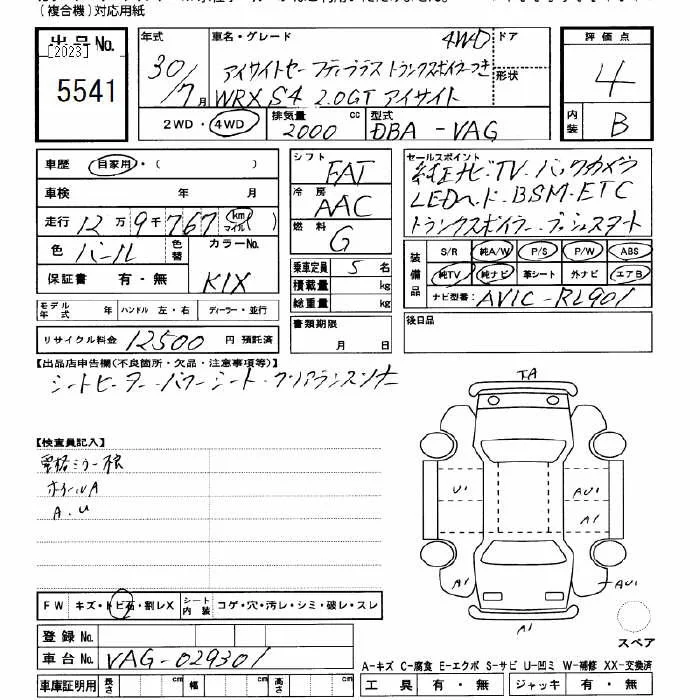 (複合機)対応用紙
出品No.
[2023]
5541
年式 車名・グレード 4WD ドア
30/7月 アイサイトセーフティプラス トランクスポイラーつき 形状
WRX S4 2.0GT アイサイト
2WD・4WD 排気量 2000 cc 型式 DBA-VAG
評価点
4
内装 B
車歴 自家用・( )
車検 年 月
走行 12万9千767 km マイル( )
色 パール 色替 カラーNo.
保証書 有・無 K1X
モデル年式 年 ハンドル 左・右 ディーラー・並行
リサイクル料金 12500 円 預託済
シフト FAT
冷房 AAC
燃料 G
乗車定員 5 名
積載量 kg
総重量 kg
書類期限
月 日
セールスポイント
純正ナビ・TV・バックカメラ
LEDヘッド・BSM・ETC
トランクスポイラー・プッシュスタート
装備品 S/R 純A/W P/S P/W ABS
純TV 純ナビ 革シート 外ナビ エアB
ナビ型番: AVIC-RL901
後日品
【出品店申告欄(不良箇所・欠品・注意事項等)】
シートヒーター・パワーシート・クリアランスソナー
【検査員記入】
電格ミラー根
ホイールA
A.U
FW キズ・トビ石・割レX シート内装 コゲ・穴・汚レ・シミ・破レ・スレ
登録No.
車台No. VAG-029301
車庫証明用 長さ cm 幅 cm 高さ cm
A1
U1
AU1
A1
A1
AU1
A1
スペア
A-キズ C-腐食 E-エクボ S-サビ U-凹ミ W-補修 XX-交換済
工具 有・無 ジャッキ 有・無